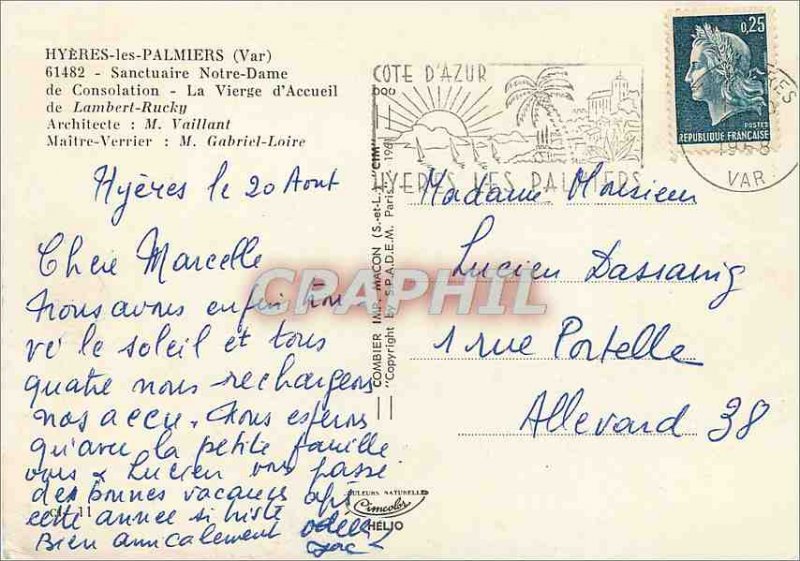 HYÈRES-les-PALMIERS (Var)
61482 - Sanctuaire Notre-Dame
de Consolation - La Vierge d'Accueil
de Lambert-Rucky
Architecte : M. Vaillant
Maître-Verrier : M. Gabriel-Loire
COTE D'AZUR
HYERES LES PALMIERS
0,25
POSTES
REPUBLIQUE FRANÇAISE
1968
VAR
Hyères le 20 Aout
Chere Marcelle
Nous avons enfin trou
vé le soleil et tous
quatre nous rechargeons
nos accu. Nous esperons
qu'avec la petite famille
vous & Lucien vous passé
des bonnes vacances après
cette année si triste
Bien amicalement
COMBIER IMP. MACON (S.-et-L.) "CIM"
"Copyright by S.P.A.D.E.M. Paris" 196
Madame Monsieur
Lucien
1 rue Portelle
Allevard 38
CRAPHIL
11
COULEURS NATURELLES
Cimcolor
HÉLIO